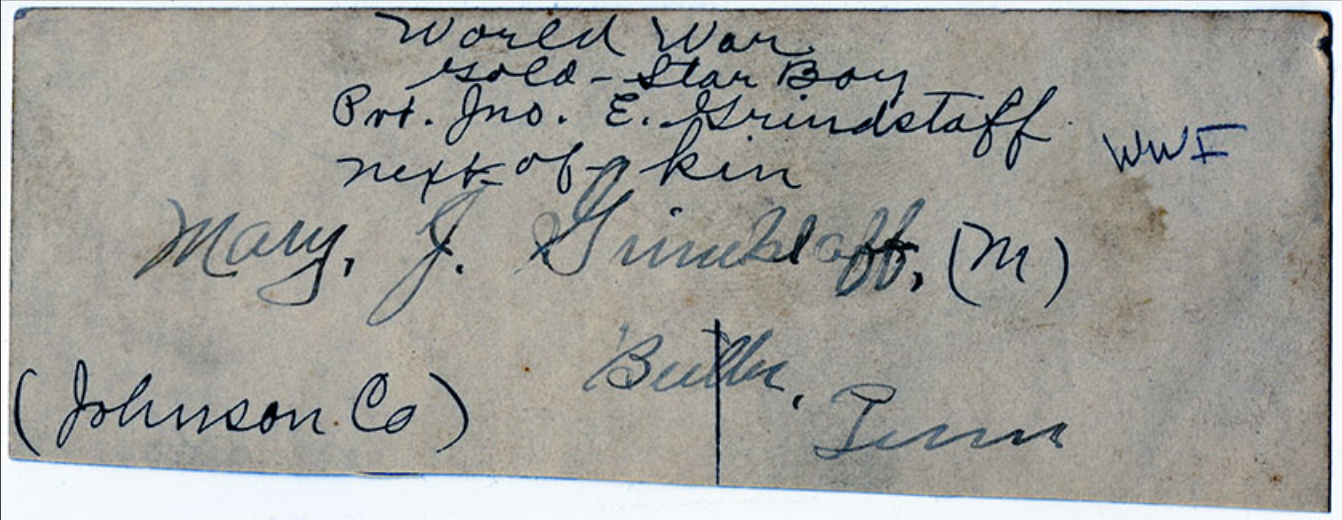 World War
Gold-Star Boy
Pvt. Jno. E. Grindstaff
next of kin
WWI
Mary, J. Grindstaff, (M)
Butler,
Tenn
(Johnson Co)